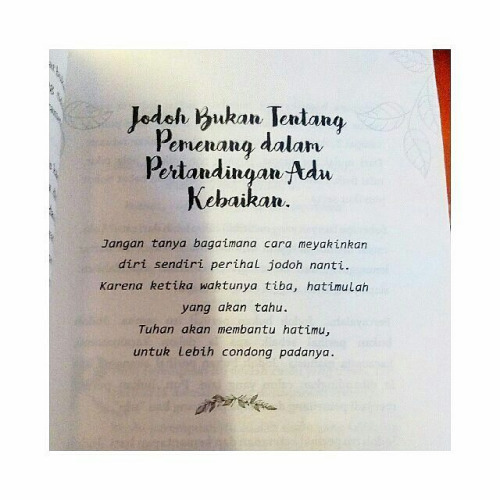 Jodoh Bukan Tentang
Pemenang dalam
Pertandingan Adu
Kebaikan.
Jangan tanya bagaimana cara meyakinkan
diri sendiri perihal jodoh nanti.
Karena ketika waktunya tiba, hatimulah
yang akan tahu.
Tuhan akan membantu hatimu,
untuk lebih condong padanya.